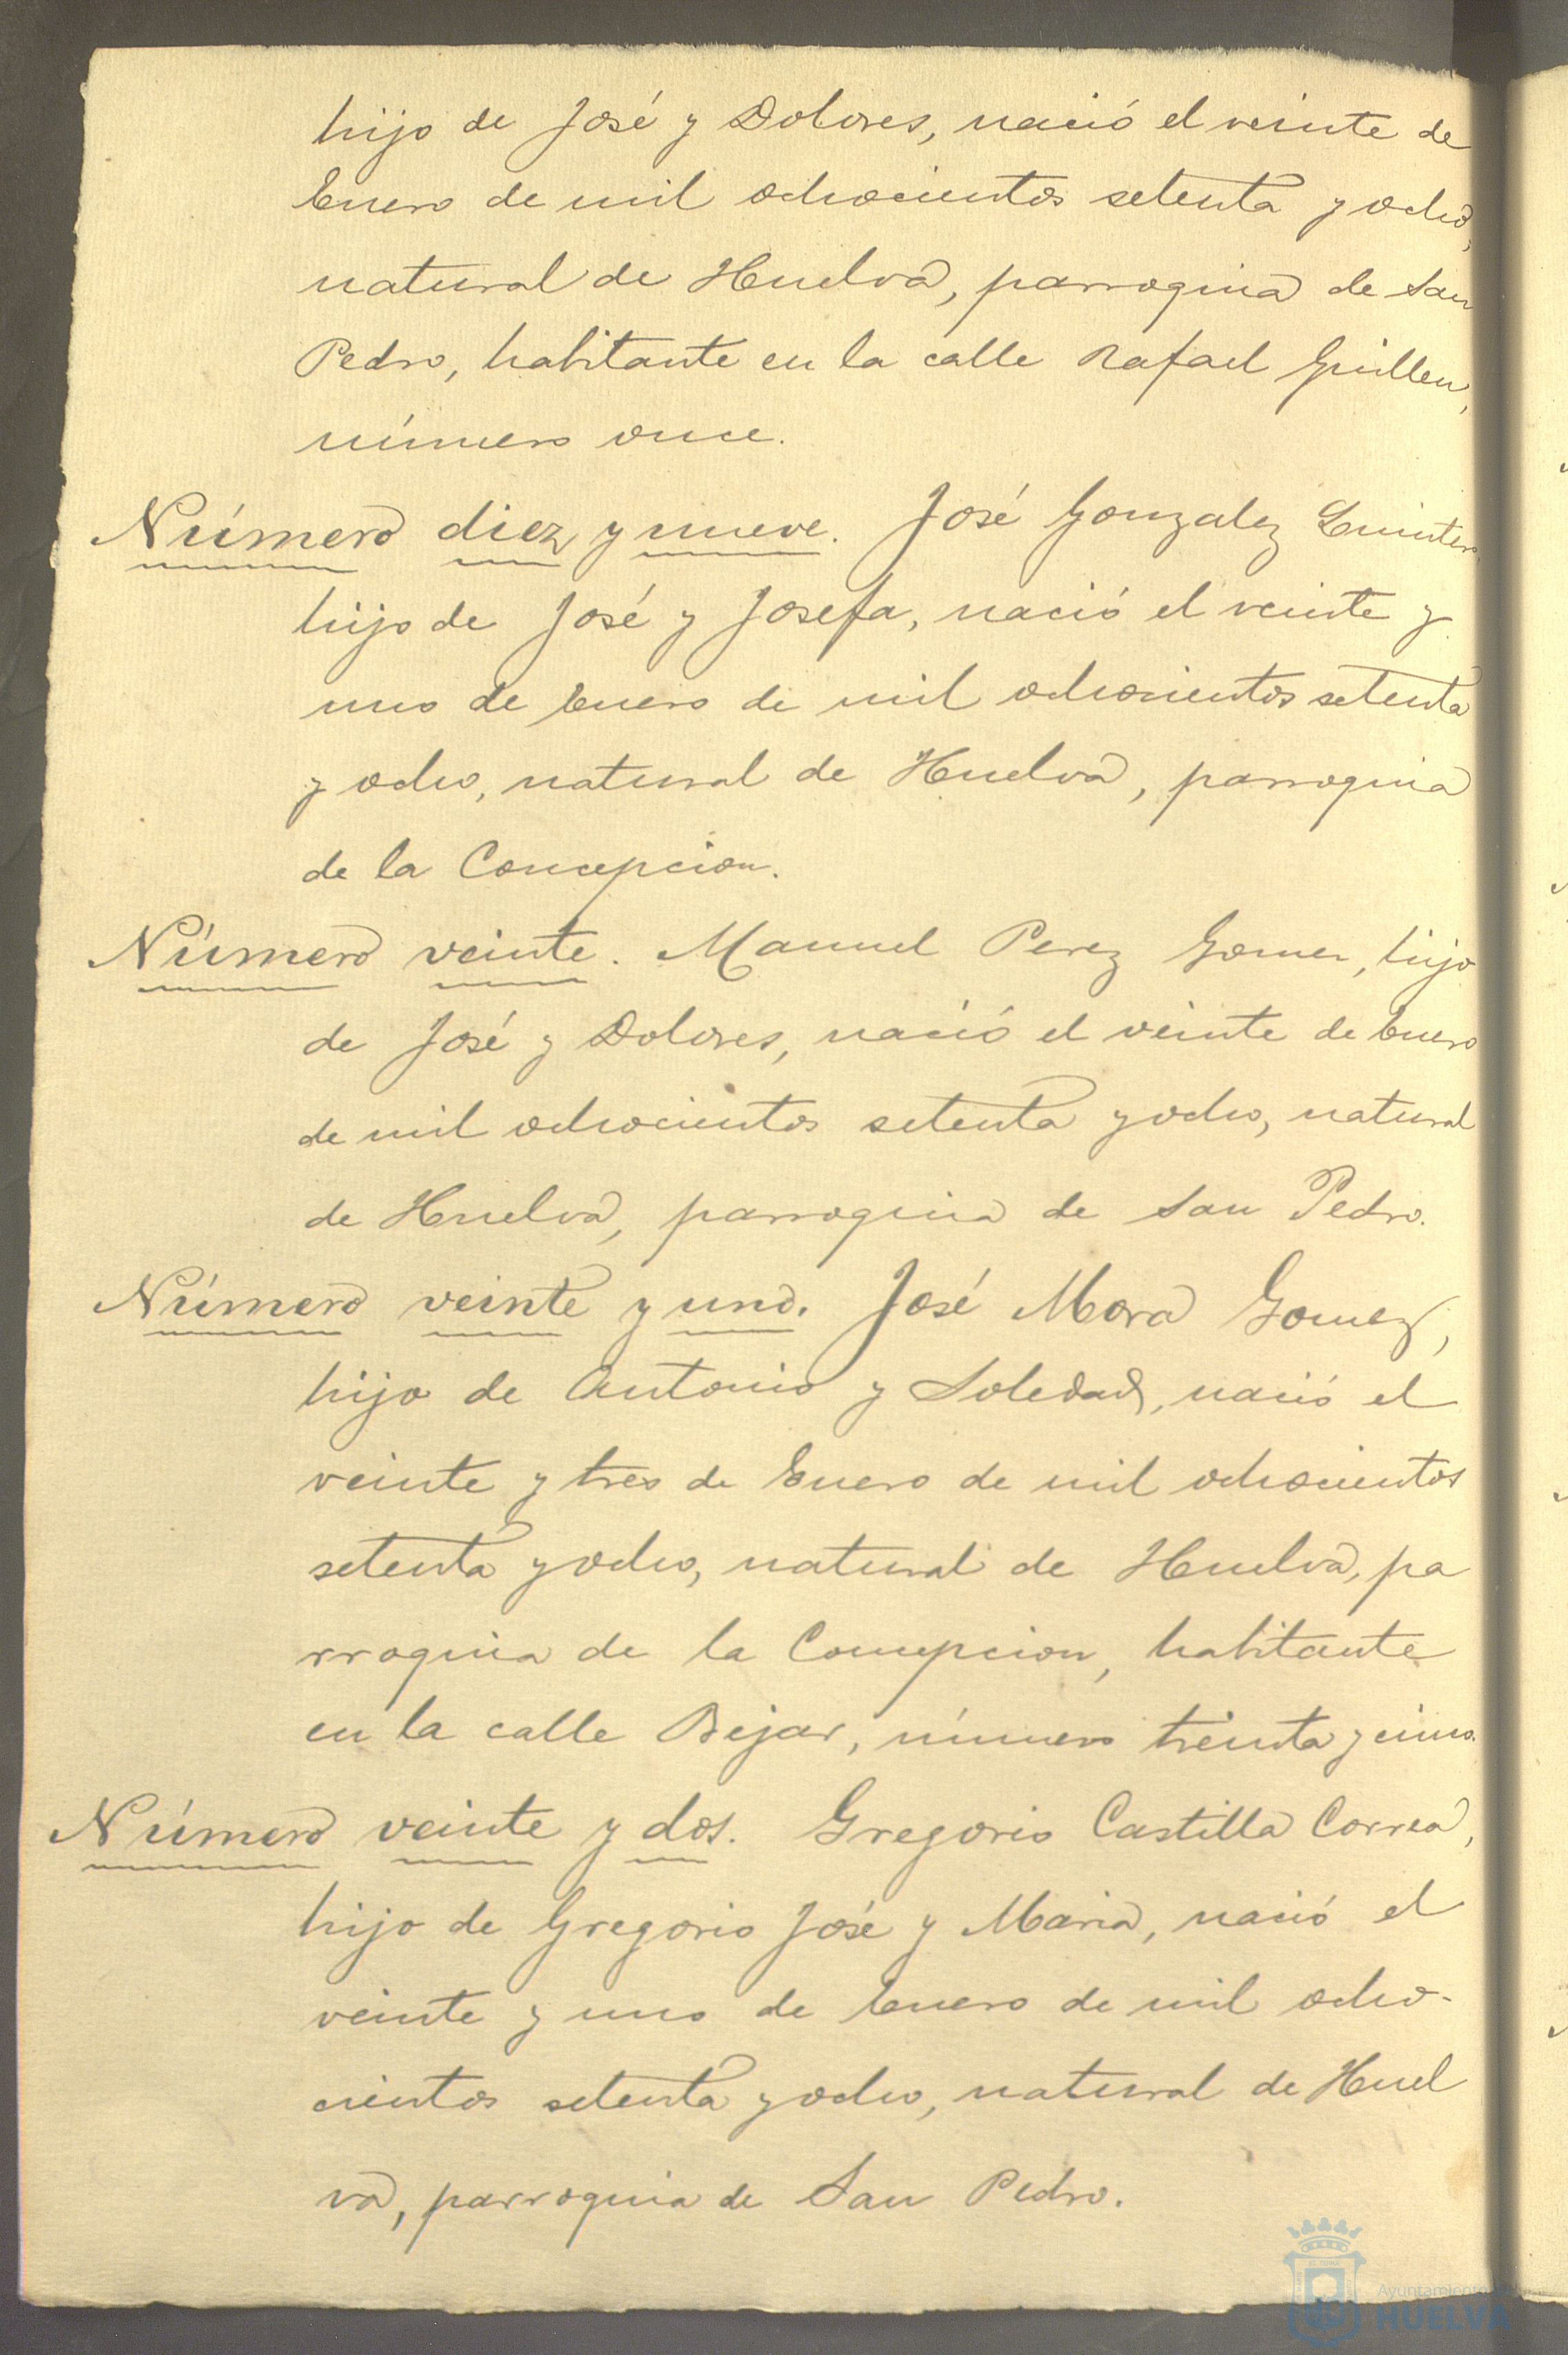 hijo de José y Dolores, nació el veinte de
Enero de mil ochocientos setenta y ocho,
natural de Huelva, parroquia de San
Pedro, habitante en la calle Rafael Guillen,
número once.
Número diez y nueve. José Gonzalez Quintero
hijo de José y Josefa, nació el veinte y
uno de Enero de mil ochocientos setenta
y ocho, natural de Huelva, parroquia
de la Concepcion.
Número veinte. Manuel Perez Gomez, hijo
de José y Dolores, nació el veinte de Enero
de mil ochocientos setenta y ocho, natural
de Huelva, parroquia de San Pedro.
Número veinte y uno. José Mora Gomez,
hijo de Antonio y Soledad, nació el
veinte y tres de Enero de mil ochocientos
setenta y ocho, natural de Huelva, pa
rroquia de la Concepcion, habitante
en la calle Bejar, número treinta y cinco.
Número veinte y dos. Gregorio Castilla Correa,
hijo de Gregorio José y Maria, nació el
veinte y uno de Enero de mil ocho-
cientos setenta y ocho, natural de Huel
va, parroquia de San Pedro.
Ayuntamiento
HUELVA